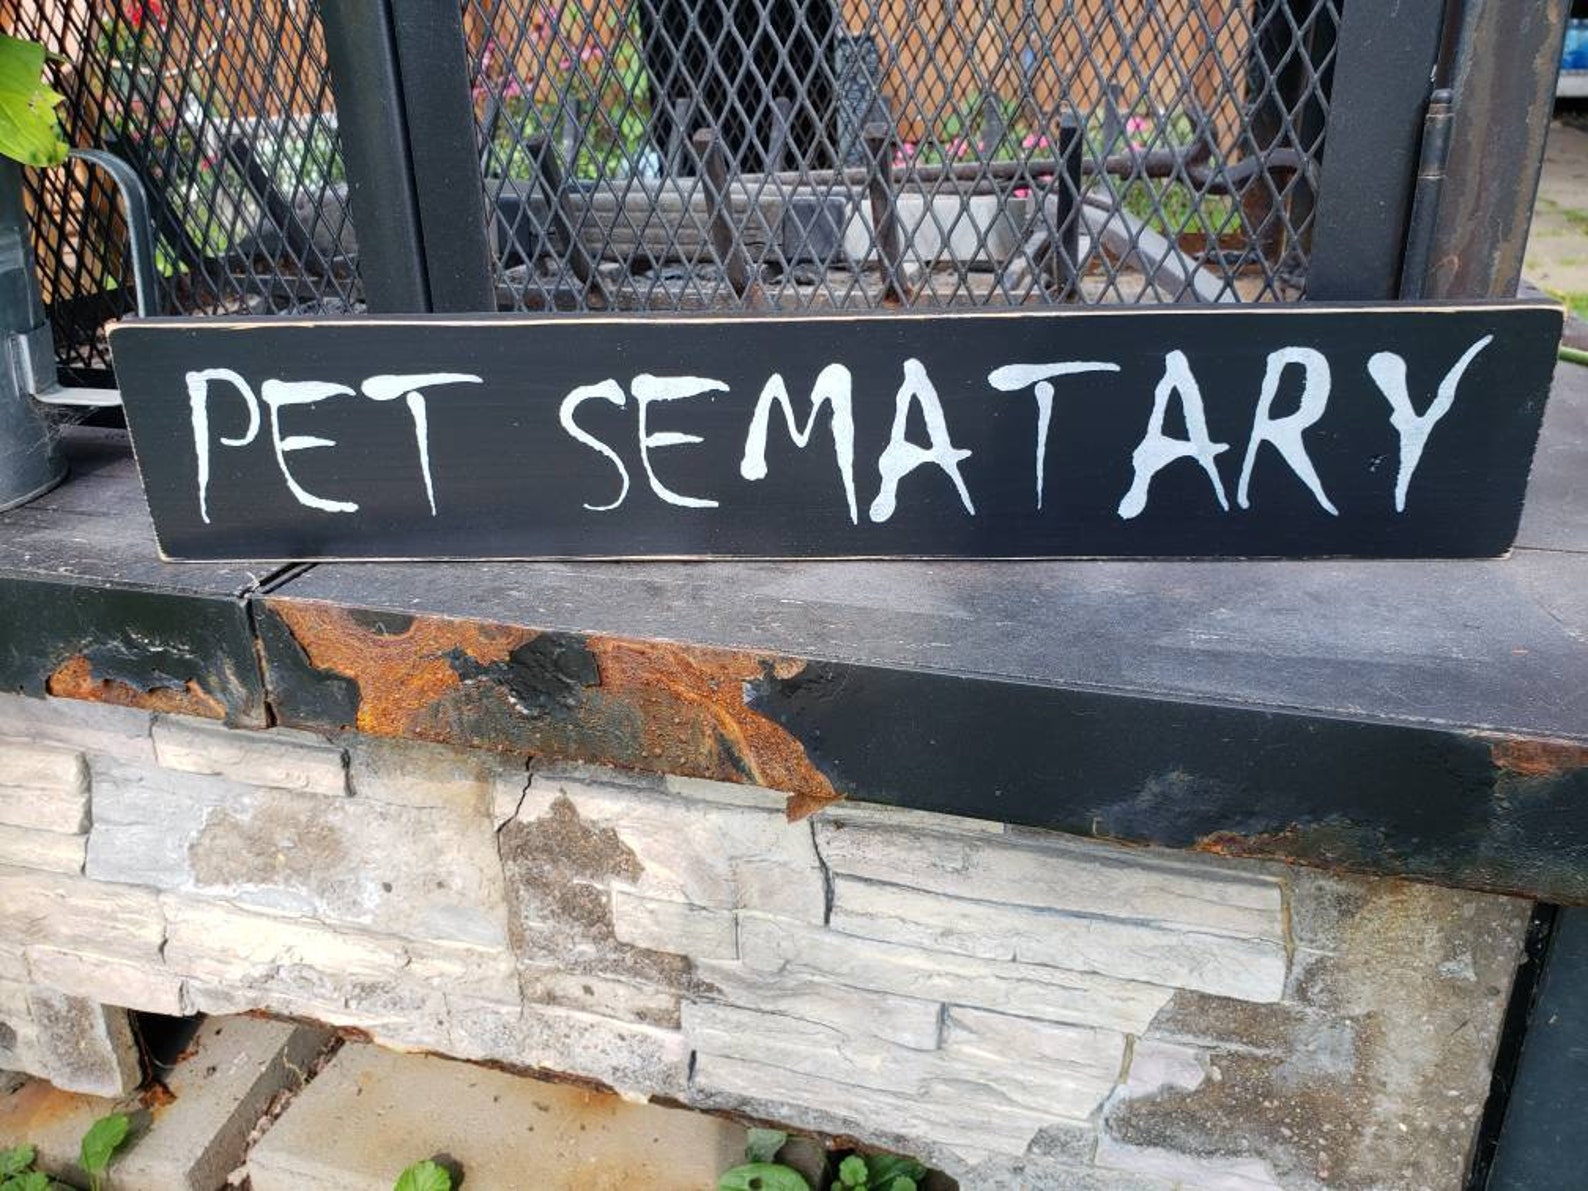 PET SEMATARY